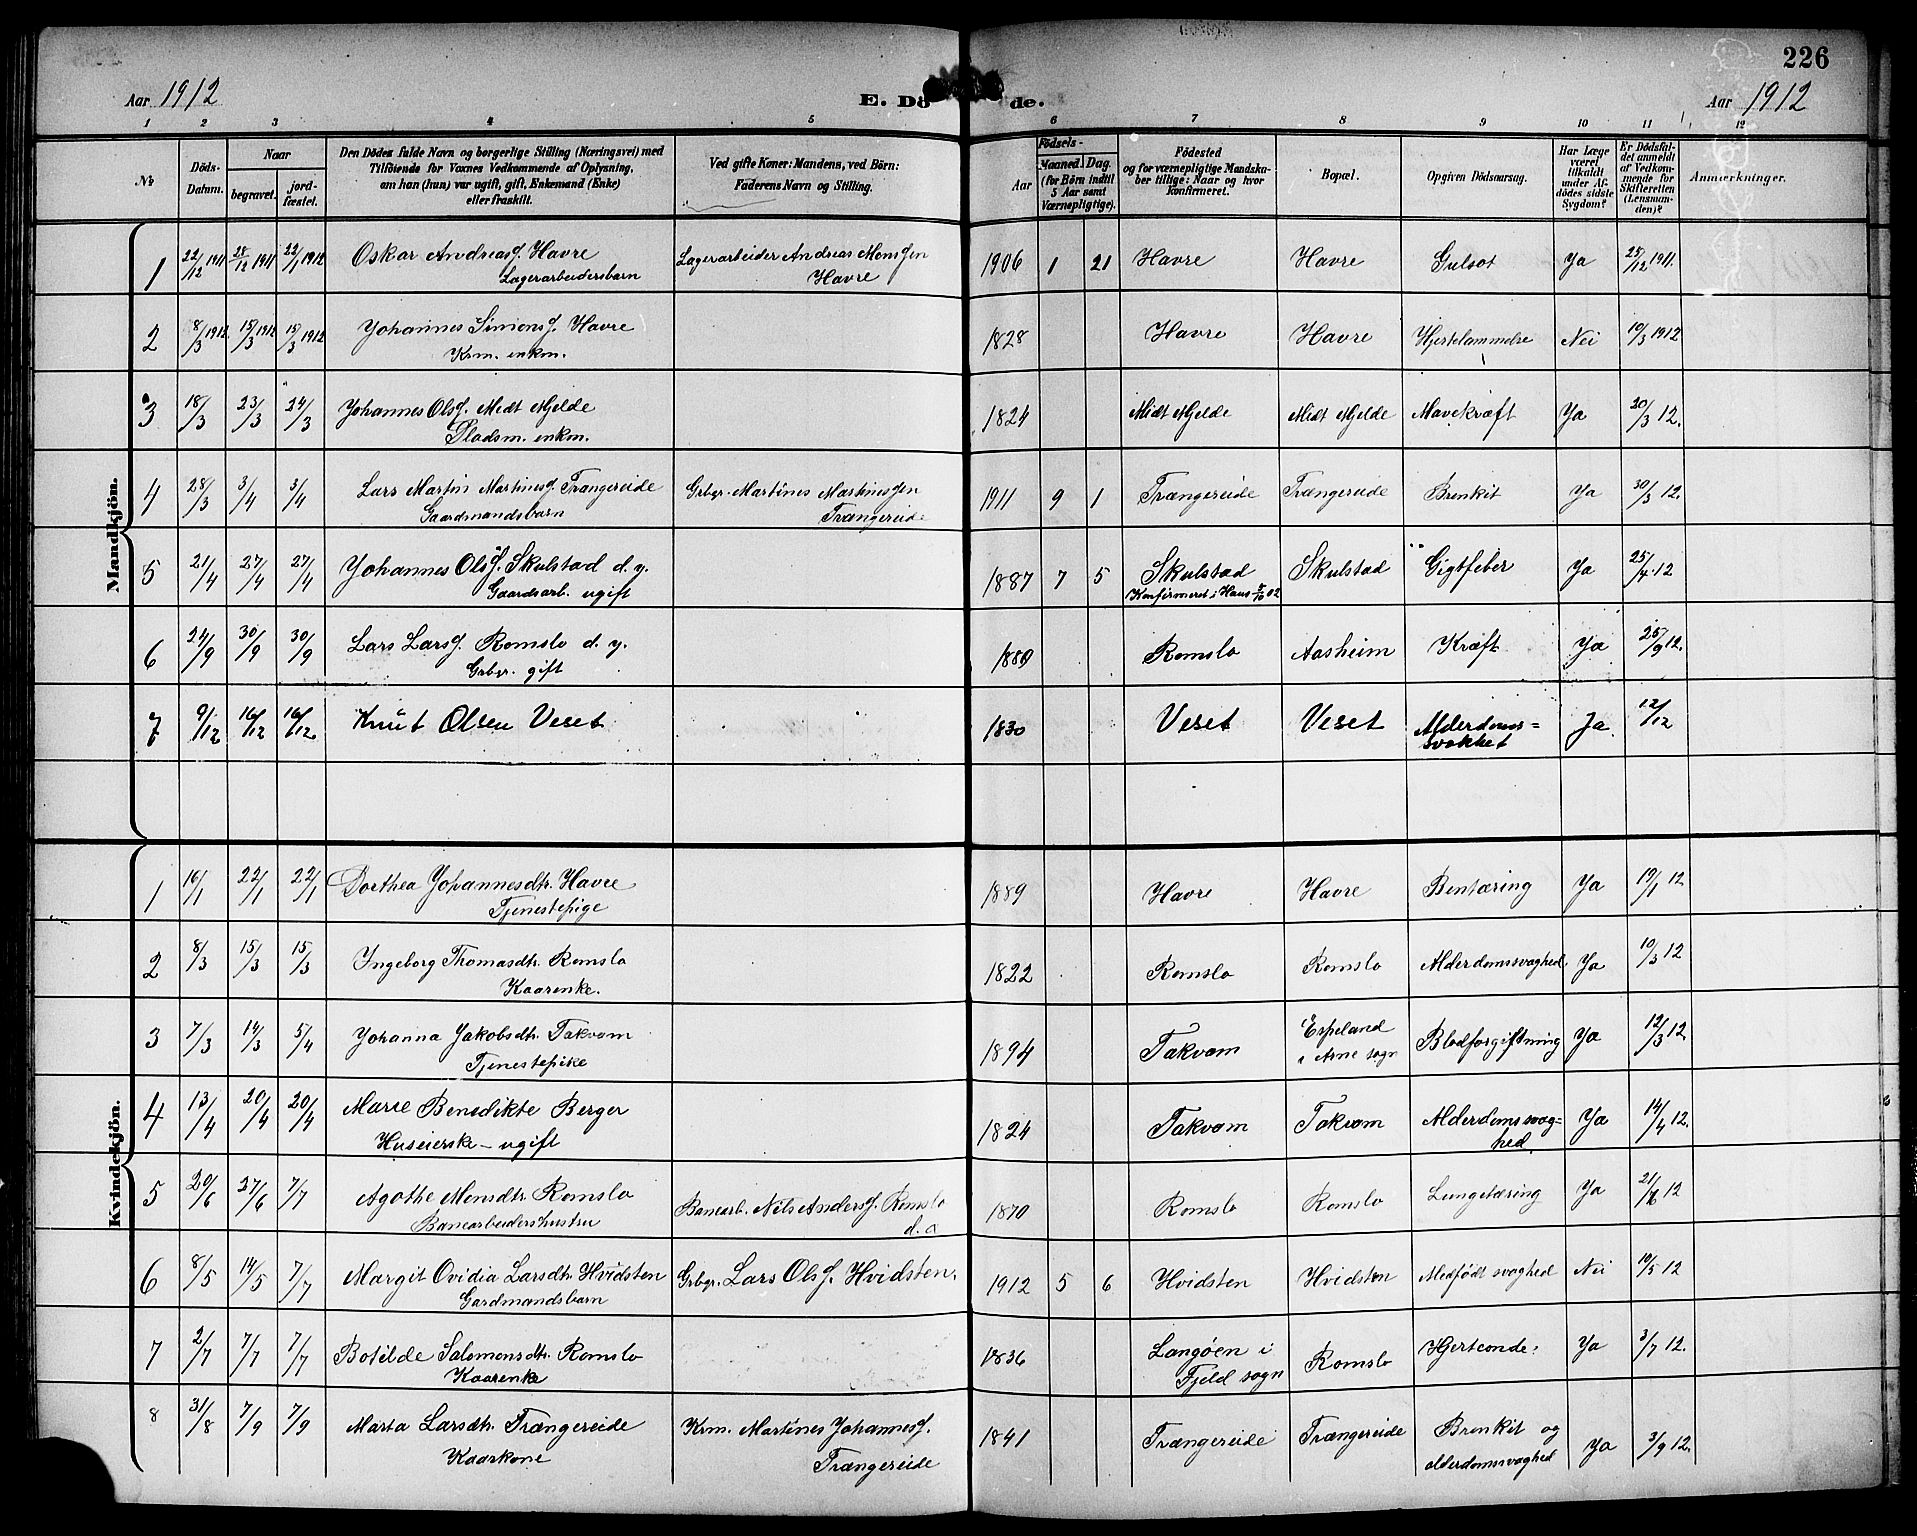 226
Aar 1912 E. Dö de. Aar 1912
1 2 3 4 5 6 7 8 9 10 11 12
№ Döds-Datum. Naar begravet. jord-fæstet. Den Dødes fulde Navn og borgerlige Stilling (Næringsvei) med Tilföiende for Voxnes Vedkommende af Oplysning, om han (hun) var ugift, gift, Enkemand (Enke) eller fraskilt. Ved gifte Koner: Mandens, ved Börn: Faderens Navn og Stilling. Aar Födsels- Maaned. Dag. (for Börn indtil 5 Aar samt Værnepligtige). Födested og for værnepligtige Mandskaber tillige: Naar og hvor konfirmeret. Bopæl. Opgiven Dödsaarsag. Har Læge været tilkaldt under Afdödes sidste Sygdom? Er Dödsfaldet anmeldt af Vedkommende for Skifteretten (Lensmanden)? Anmærkninger.
Mandkjön.
1 22/12 1911 28/12 1911 22/1 1912 Oskar Andreasf. Havre Lagerarbeider Andreas Monssen 1906 1 21 Havre Havre Gulsot Ja 25/12 1911.
Lagerarbeidersbarn Havre
2 8/3 1912. 15/3 1912 15/3 1912 Johannes Simonsf. Havre 1828 Havre Havre Hjertelammelse Nei 10/3 1912
Krm. enkm.
3 18/3 23/3 24/3 Johannes Olsf. Midt Mjelde 1824 Midt Mjelde Midt Mjelde Mavekræft Ja 20/3 12.
Pladsm. enkm.
4 28/3 3/4 3/4 Lars Martin Martinesf. Trængereide Grbgr. Martines Martinessen 1911 9 1 Trængereide Trængereide Bronkit Ja 30/3 12.
Gaardmandsbarn Trængereide
5 21/4 27/4 27/4 Johannes Olsf. Skulstad d. y. 1887 7 5 Skulstad Skulstad Gigtfeber Ja 25/4 12
Gaardsarb. ugift Konfirmeret i Haus 5/10 02
6 24/9 30/9 30/9 Lars Larsf. Romslo d. y. 1880 Romslo Aasheim Kræft Ja 25/9 12.
Grbgr. gift
7 9/12 16/12 16/12. Knut Olsen Veset 1830 Veset Veset Alderdoms= Ja. 12/12
svakket
Kvindekjön.
1 16/1 22/1 22/1 Dorthea Johannesdtr. Havre 1889 Havre Havre Bentæring Ja 19/1 12
Tjenestepige
2 8/3 15/3 15/3 Ingeborg Thomasdtr. Romslo 1822 Romslo Romslo Alderdomssvaghed Ja 10/3 12
Kaarenke.
3 7/3 14/3 5/4 Johanna Jakobsdtr. Takvam 1894 Takvam Espeland Blodforgiftning Ja 12/3 12.
Tjenestepike i Arne sogn
4 13/4 20/4 20/4 Marie Benedikte Berger 1824 Takvam Takvam Alderdomssvag= Ja 14/4 12.
Huseierske – ugift hed.
5 20/6 27/6 7/7 Agathe Monsdtr. Romslo Banearb. Nils Andersf. Romslo 1870 Romslo Romslo Lungetæring Ja 21/6 12
Banearbeidershustru d. a
6 8/5 14/5 7/7 Margit Ovidia Larsdtr. Hvidsten Grbgr. Lars Olsf. Hvidsten. 1912 5 6 Hvidsten Hvidsten Medfödt svaghed Nei 10/5 12
Gardmandsbarn
7 2/7 7/7 7/7 Botilde Salomonsdtr. Romslo 1836 Langöen i Romslo Hjerteonde. Ja 3/7 12.
Kaarenke Fjeld sogn
8 31/8 7/9 7/9 Marta Larsdtr. Trængereide Krm. Martines Johannesf. 1841 Trængereide Trængereide Bronkit og Ja 3/9 12.
Kaarkone Trængereide alderdomssvaghed